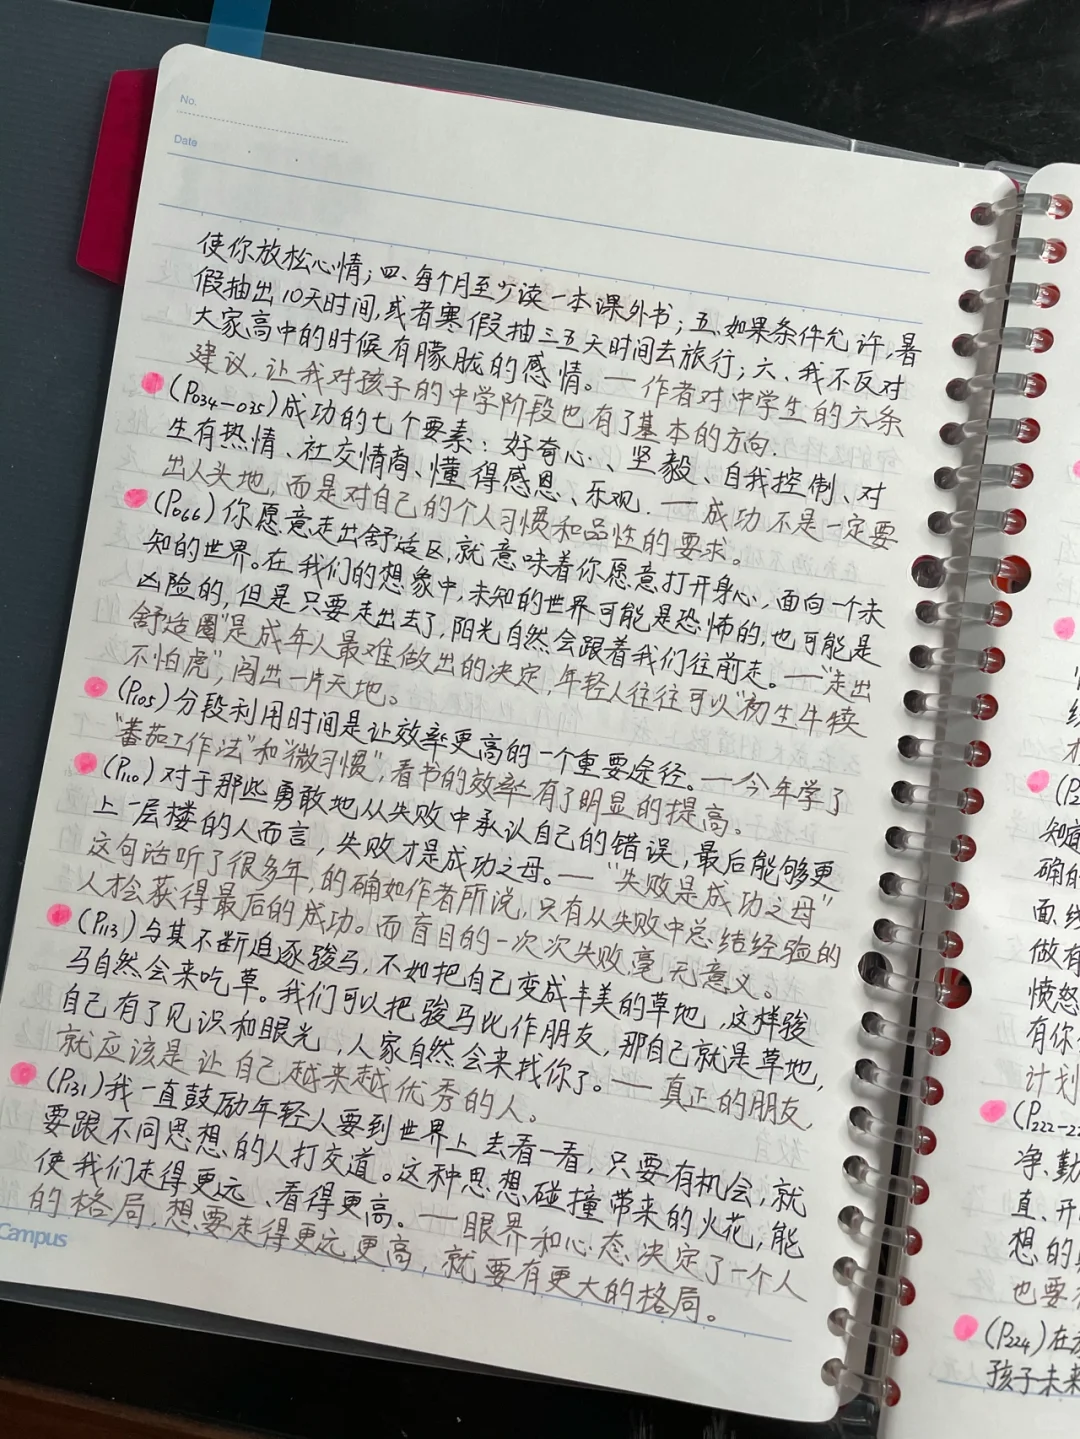 No.
Date
使你放松心情；四、每个月至少读一本课外书；五、如果条件允许，暑
假抽出10天时间，或者寒假抽三五天时间去旅行；六、我不反对
大家高中的时候有朦胧的感情。——作者对中学生的六条
建议，让我对孩子的中学阶段也有了基本的方向．
(P034-035)成功的七个要素：好奇心、坚毅、自我控制、对
生有热情、社交情商、懂得感恩、乐观．——成功不是一定要
出人头地，而是对自己的个人习惯和品性的要求。
(P066)你愿意走出舒适区，就意味着你愿意打开身心，面向一个未
知的世界。在我们的想象中，未知的世界可能是恐怖的，也可能是
凶险的，但是只要走出去了，阳光自然会跟着我们往前走。——“走出
舒适圈”是成年人最难做出的决定，年轻人往往可以“初生牛犊
不怕虎”，闯出一片天地。
(P105)分段利用时间是让效率更高的一个重要途径。——今年学了
“蕃茄工作法”和“微习惯”，看书的效率有了明显的提高。
(P110)对于那些勇敢地从失败中承认自己的错误，最后能够更
上一层楼的人而言，失败才是成功之母。——“失败是成功之母”
这句话听了很多年，的确如作者所说，只有从失败中总结经验的
人才会获得最后的成功。而盲目的一次次失败，毫无意义。
(P113)与其不断追逐骏马，不如把自己变成丰美的草地，这样骏
马自然会来吃草。我们可以把骏马比作朋友，那自己就是草地，
自己有了见识和眼光，人家自然会来找你了。——真正的朋友，
就应该是让自己越来越优秀的人。
(P131)我一直鼓励年轻人要到世界上去看一看，只要有机会，就
要跟不同思想的人打交道。这种思想碰撞带来的火花，能
使我们走得更远、看得更高。——眼界和心态决定了一个人
的格局，想要走得更远更高，就要有更大的格局。
Campus
确的
面、线
做有
愤怒
有你
计划
(P222-22
净、勤
直、开
想的
也要
(P224)在
孩子未来